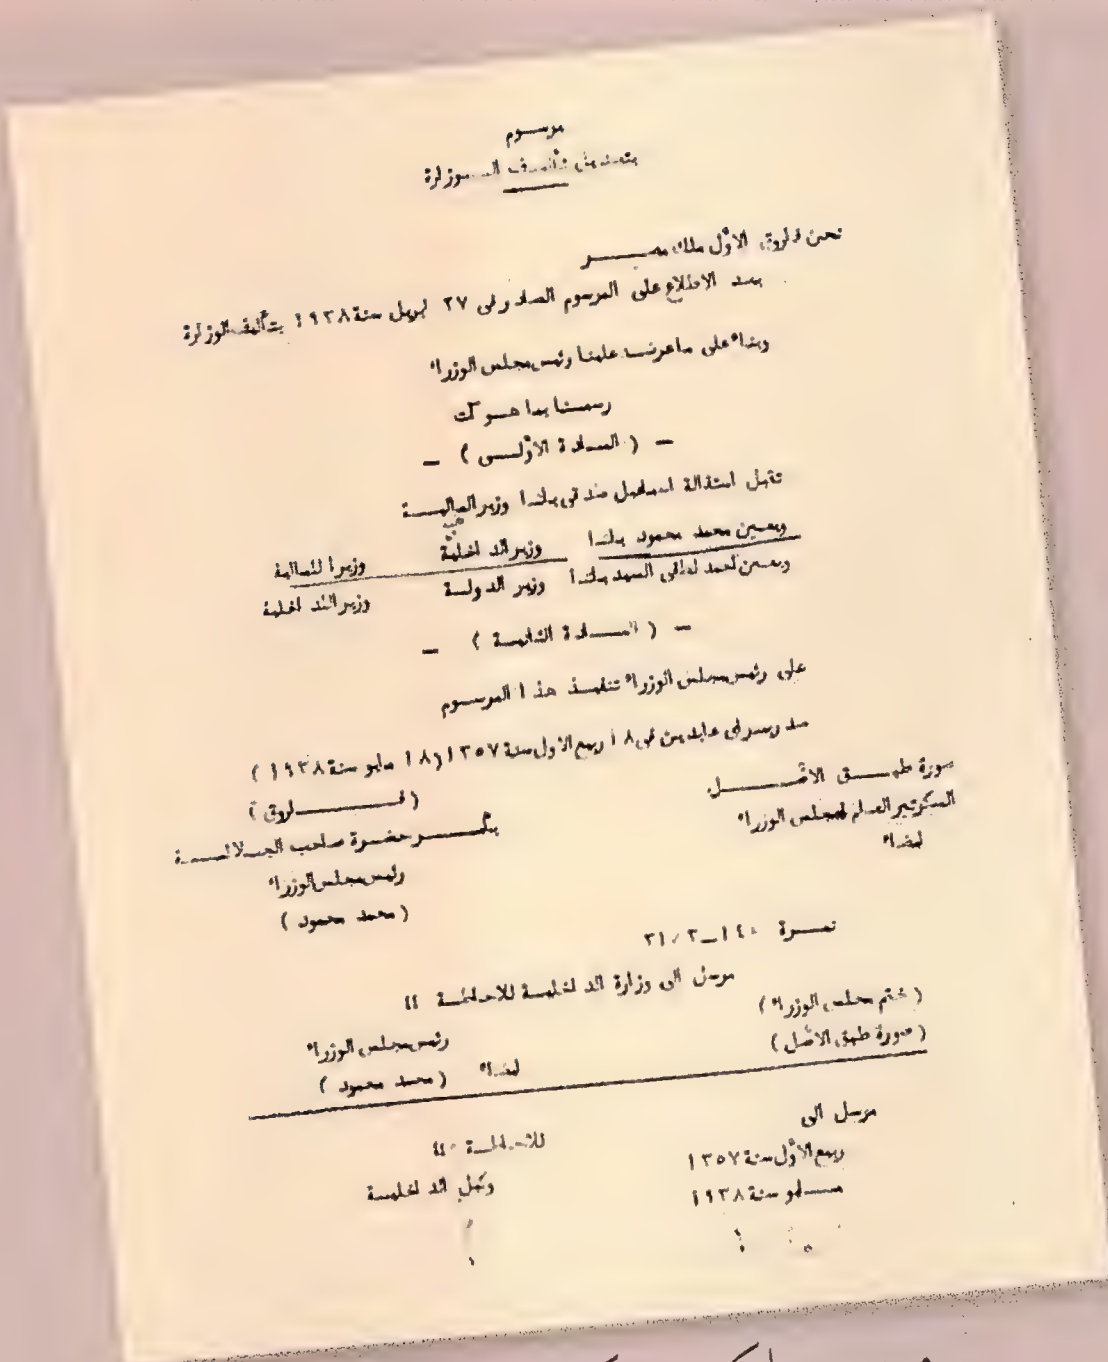 مرسوم
بتعديل تأليف الوزارة
نحن فاروق الأول ملك مصر
بعد الاطلاع على المرسوم الصادر فى ٢٧ ابريل سنة ١٩٣٨ بتأليف الوزارة
وبناء على ماعرضه علينا رئيس مجلس الوزراء
رسمنا بما هو آت
— ( المادة الأولى ) —
تقبل استقالة اسماعيل صدقى باشا وزير المالية
ويعين محمد محمود باشا وزير الداخلية وزيرا للمالية
ويعين احمد لطفى السيد باشا وزير الدولة وزير الداخلية
— ( المادة الثانية ) —
على رئيس مجلس الوزراء تنفيذ هذا المرسوم
صدر بسراى عابدين فى ١٨ ربيع الأول سنة ١٣٥٧ ( ١٨ مايو سنة ١٩٣٨ )
صورة طبق الأصل ( فاروق )
السكوتير العام لمجلس الوزراء بأمر حضرة صاحب الجلالة
امضاء رئيس مجلس الوزراء
( محمد محمود )
نمرة ١٤٠ـ٢١/٢
مرسل الى وزارة الداخلية للاحاطة ،،
( ختم مجلس الوزراء ) رئيس مجلس الوزراء
( صورة طبق الأصل ) امضاء ( محمد محمود )
مرسل الى للاحاطة ،،
ربيع الأول سنة ١٣٥٧ وكيل الداخلية
مايو سنة ١٩٣٨